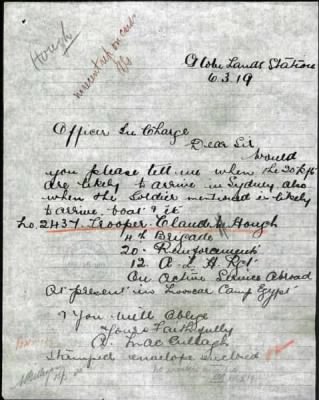 Hough
Globe Lands Station
6.3.19
Officer In Charge
Dear Sir
would
you please tell me when the
are likely to arrive in Sydney also
when the soldier mentioned is likely
to arrive boat &
No. 2437. Trooper. Claude Hough
4th Brigade
20. Reinforcement
12 A. L. H Rgt
On Active Service Abroad
At present in Camp Egypt
& You will oblige
Yours Faithfully
MacCullagh
Stamped envelope enclosed